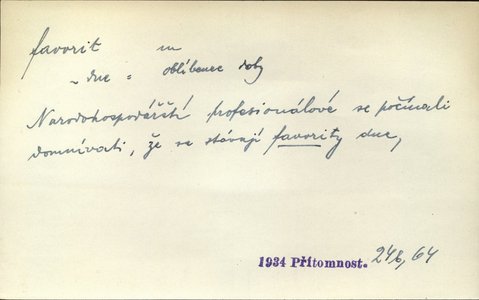 favorit m
„ dne " oblíbenec doby
Narodohospodářští profesionálové se počínali
domnívati, že se stávají favority dne,
1934 Přítomnost. 246, 64